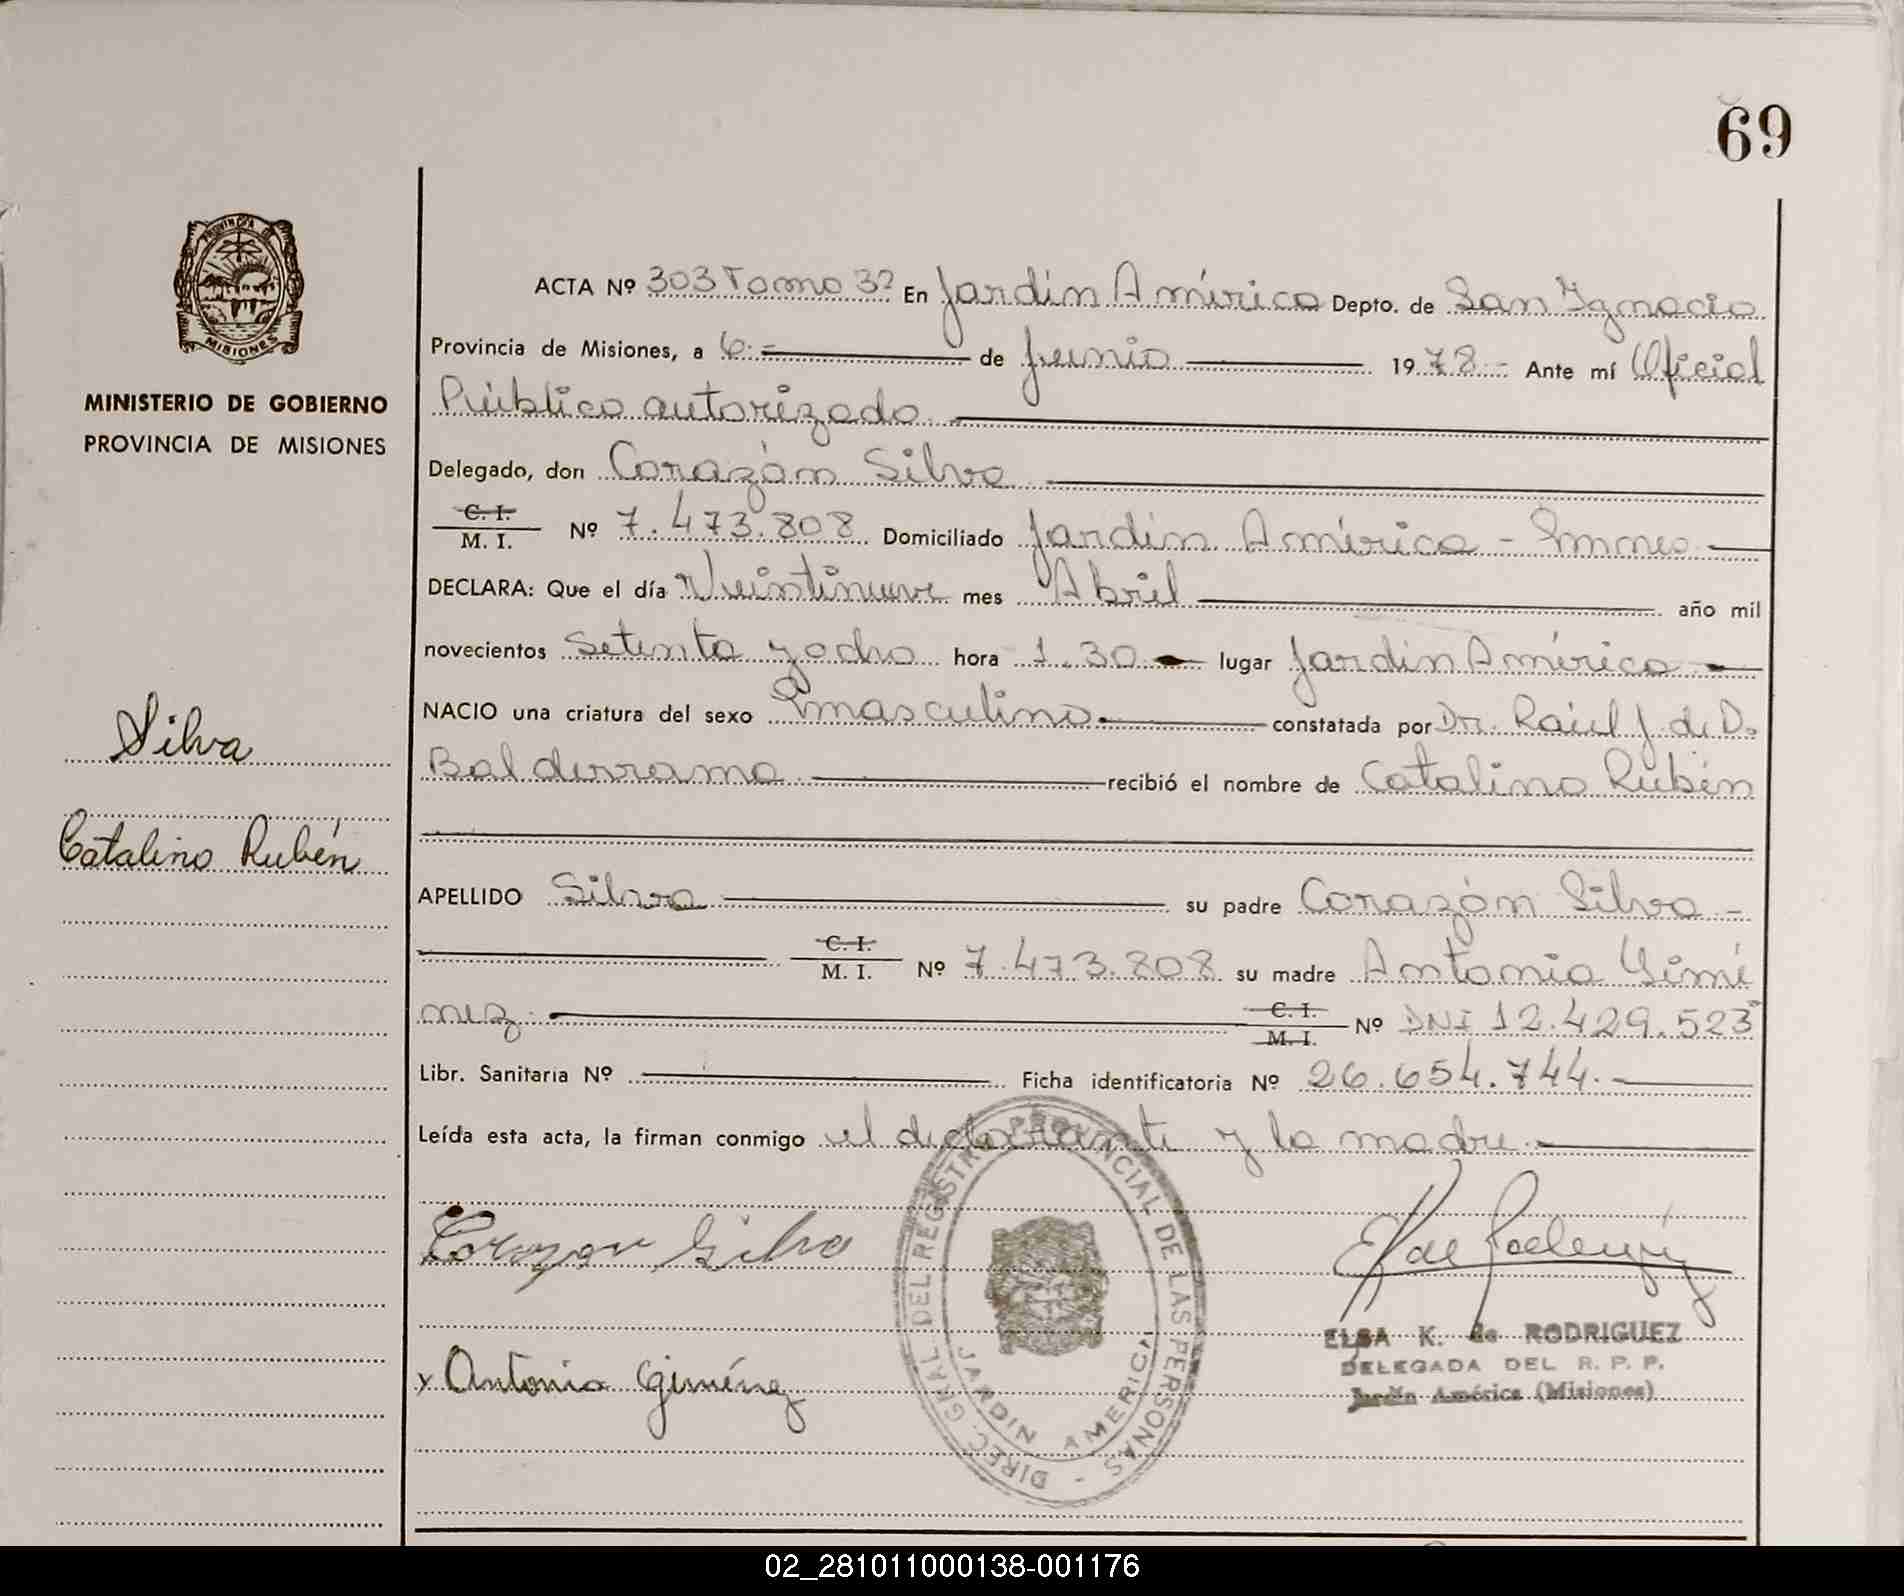 69
PROVINCIA DE
MISIONES
MINISTERIO DE GOBIERNO
PROVINCIA DE MISIONES
Silva
Catalino Rubén
ACTA Nº 303 Tomo 3º En Jardín América Depto. de San Ignacio
Provincia de Misiones, a 6.- de Junio 1978- Ante mí Oficial
Público autorizado
Delegado, don Corazón Silva
C. I.
M. I. Nº 7.473.808 Domiciliado Jardín América - Mnes
DECLARA: Que el día Veintinueve mes Abril año mil
novecientos Setenta y ocho hora 1.30 lugar Jardín América
NACIO una criatura del sexo masculino constatada por Dr. Raúl J. de D.
Balderrama recibió el nombre de Catalino Rubén
APELLIDO Silva su padre Corazón Silva -
C. I.
M. I. Nº 7.473.808 su madre Antonia Gimé
nez. C. I.
M. I. Nº DNI 12.429.523
Libr. Sanitaria Nº Ficha identificatoria Nº 26.654.744.
Leída esta acta, la firman conmigo el declarante y la madre.
Corazon Silva
x Antonia Giménez
DIREC. GRAL. DEL REGISTRO PROVINCIAL DE LAS PERSONAS -
JARDIN AMERICA
ELSA K. de RODRIGUEZ
DELEGADA DEL R. P. P.
Jardín América (Misiones)
02_281011000138-001176